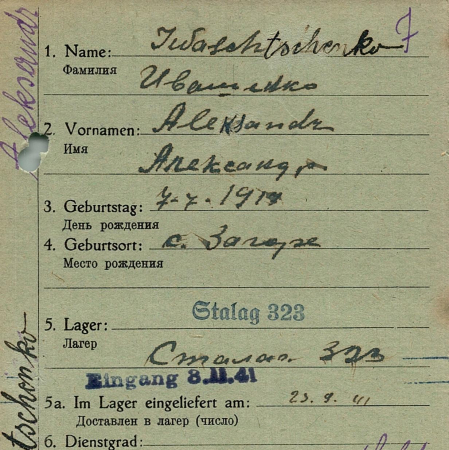 Aleksandr
tschonko
1. Name: Iwaschtschenko F
Фамилия
Иващенко
2. Vornamen: Aleksandr
Имя
Александр
3. Geburtstag: 7-7-1914
День рождения
4. Geburtsort: с. Загоре
Место рождения
Stalag 323
5. Lager:
Лагер
Сталаг 323
Eingang 8.11.41
5a. Im Lager eingeliefert am: 23.9.41
Доставлен в лагер (число)
6. Dienstgrad: